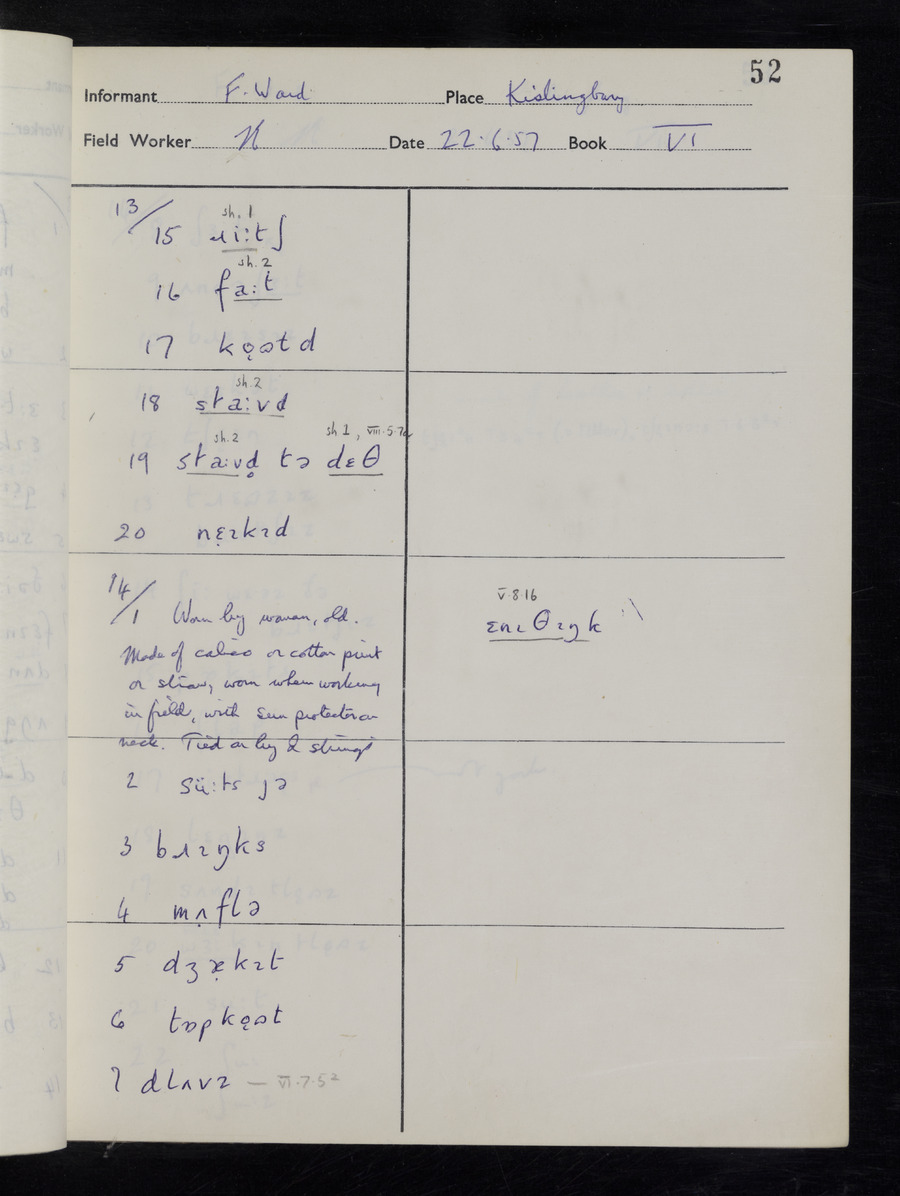 52
Informant F. Ward Place Kislingbury
Field Worker Date 22.6.57 Book VI
13/
sh. 1
15 ɹiːtʃ
sh. 2
16 faːt
17 kǫʊtd
sh. 2
18 staːvd
sh. 2 sh 1, VIII.5.7a
19 staːvd̥ tə dɛθ
20 nɛ̣ɪkɪd
14/
1 Worn by woman, old.
Made of calico or cotton print
or straw, worn when working
in field, with sun protector on
neck. Tied on by 2 strings
V.8.16
ɛnɪθɪŋk
2 süːts jə
3 bɹɪŋks
4 mʌ̣flə
5 dʒæ̣kɪt
6 tɒpkǫʊt
7 dlʌvz — VI.7.5²